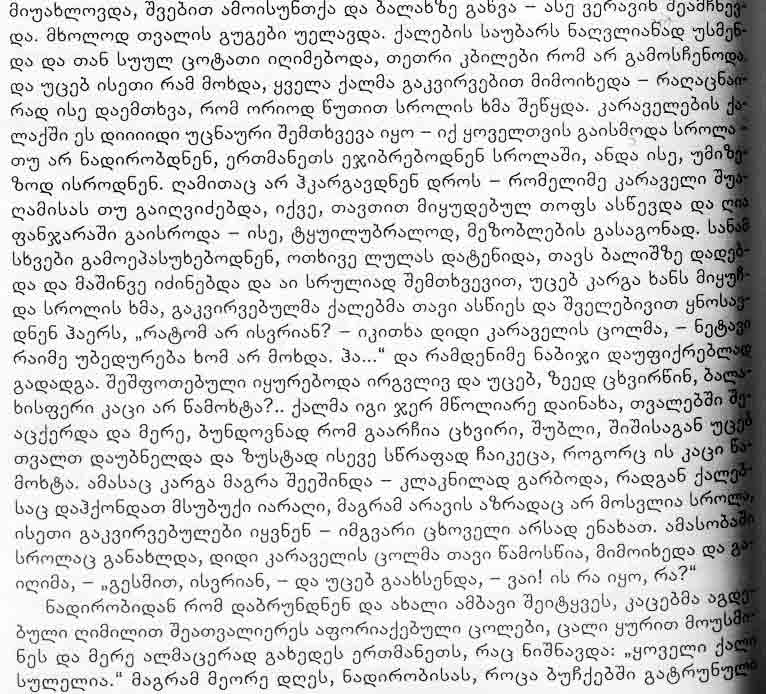 მიუახლოვდა, შვებით ამოისუნთქა და ბალახზე გაწვა – ასე ვერავინ შეამჩნევ-
და. მხოლოდ თვალის გუგები უელავდა. ქალების საუბარს ნაღვლიანად უსმენ-
და და თან სუულ ცოტათი იღიმებოდა, თეთრი კბილები რომ არ გამოსჩენოდა,
და უცებ ისეთი რამ მოხდა, ყველა ქალმა გაკვირვებით მიმოიხედა – რაღაცნაი-
რად ისე დაემთხვა, რომ ორიოდ წუთით სროლის ხმა შეწყდა. კარაველების ქა-
ლაქში ეს დიიიიდი უცნაური შემთხვევა იყო – იქ ყოველთვის გაისმოდა სროლა –
თუ არ ნადირობდნენ, ერთმანეთს ეჯიბრებოდნენ სროლაში, ანდა ისე, უმიზე-
ზოდ ისროდნენ. ღამითაც არ ჰკარგავდნენ დროს – რომელიმე კარაველი შუა-
ღამისას თუ გაიღვიძებდა, იქვე, თავთით მიყუდებულ თოფს ასწევდა და ღია
ფანჯარაში გაისროდა – ისე, ტყუილუბრალოდ, მეზობლების გასაგონად. სანამ
სხვები გამოეპასუხებოდნენ, ოთხივე ლულას დატენიდა, თავს ბალიშზე დადებ-
და და მაშინვე იძინებდა და აი სრულიად შემთხვევით, უცებ კარგა ხანს მიყუჩ-
და სროლის ხმა, გაკვირვებულმა ქალებმა თავი ასწიეს და შველებივით ყნოსავ-
დნენ ჰაერს, „რატომ არ ისვრიან? – იკითხა დიდი კარაველის ცოლმა, – ნეტავი
რაიმე უბედურება ხომ არ მოხდა. ჰა...“ და რამდენიმე ნაბიჯი დაუფიქრებლად
გადადგა. შეშფოთებული იყურებოდა ირგვლივ და უცებ, ზეედ ცხვირწინ, ბალა-
ხისფერი კაცი არ წამოხტა?.. ქალმა იგი ჯერ მწოლიარე დაინახა, თვალებში შე-
აცქერდა და მერე, ბუნდოვნად რომ გაარჩია ცხვირი, შუბლი, შიშისაგან უცებ
თვალთ დაუბნელდა და ზუსტად ისევე სწრაფად ჩაიკეცა, როგორც ის კაცი წა-
მოხტა. ამასაც კარგა მაგრა შეეშინდა – კლაკნილად გარბოდა, რადგან ქალებ-
საც დაჰქონდათ მსუბუქი იარაღი, მაგრამ არავის აზრადაც არ მოსვლია სროლა,
ისეთი გაკვირვებულები იყვნენ – იმგვარი ცხოველი არსად ენახათ. ამასობაში
სროლაც განახლდა, დიდი კარაველის ცოლმა თავი წამოსწია, მიმოიხედა და გა-
იღიმა, – „გესმით, ისვრიან, – და უცებ გაახსენდა, – ვაი! ის რა იყო, რა?“
ნადირობიდან რომ დაბრუნდნენ და ახალი ამბავი შეიტყვეს, კაცებმა აგდე-
ბული ღიმილით შეათვალიერეს აფორიაქებული ცოლები, ცალი ყურით მოუსმი-
ნეს და მერე ალმაცერად გახედეს ერთმანეთს, რაც ნიშნავდა: „ყოველი ქალი
სულელია.“ მაგრამ მეორე დღეს, ნადირობისას, როცა ბუჩქებში გატრუნული